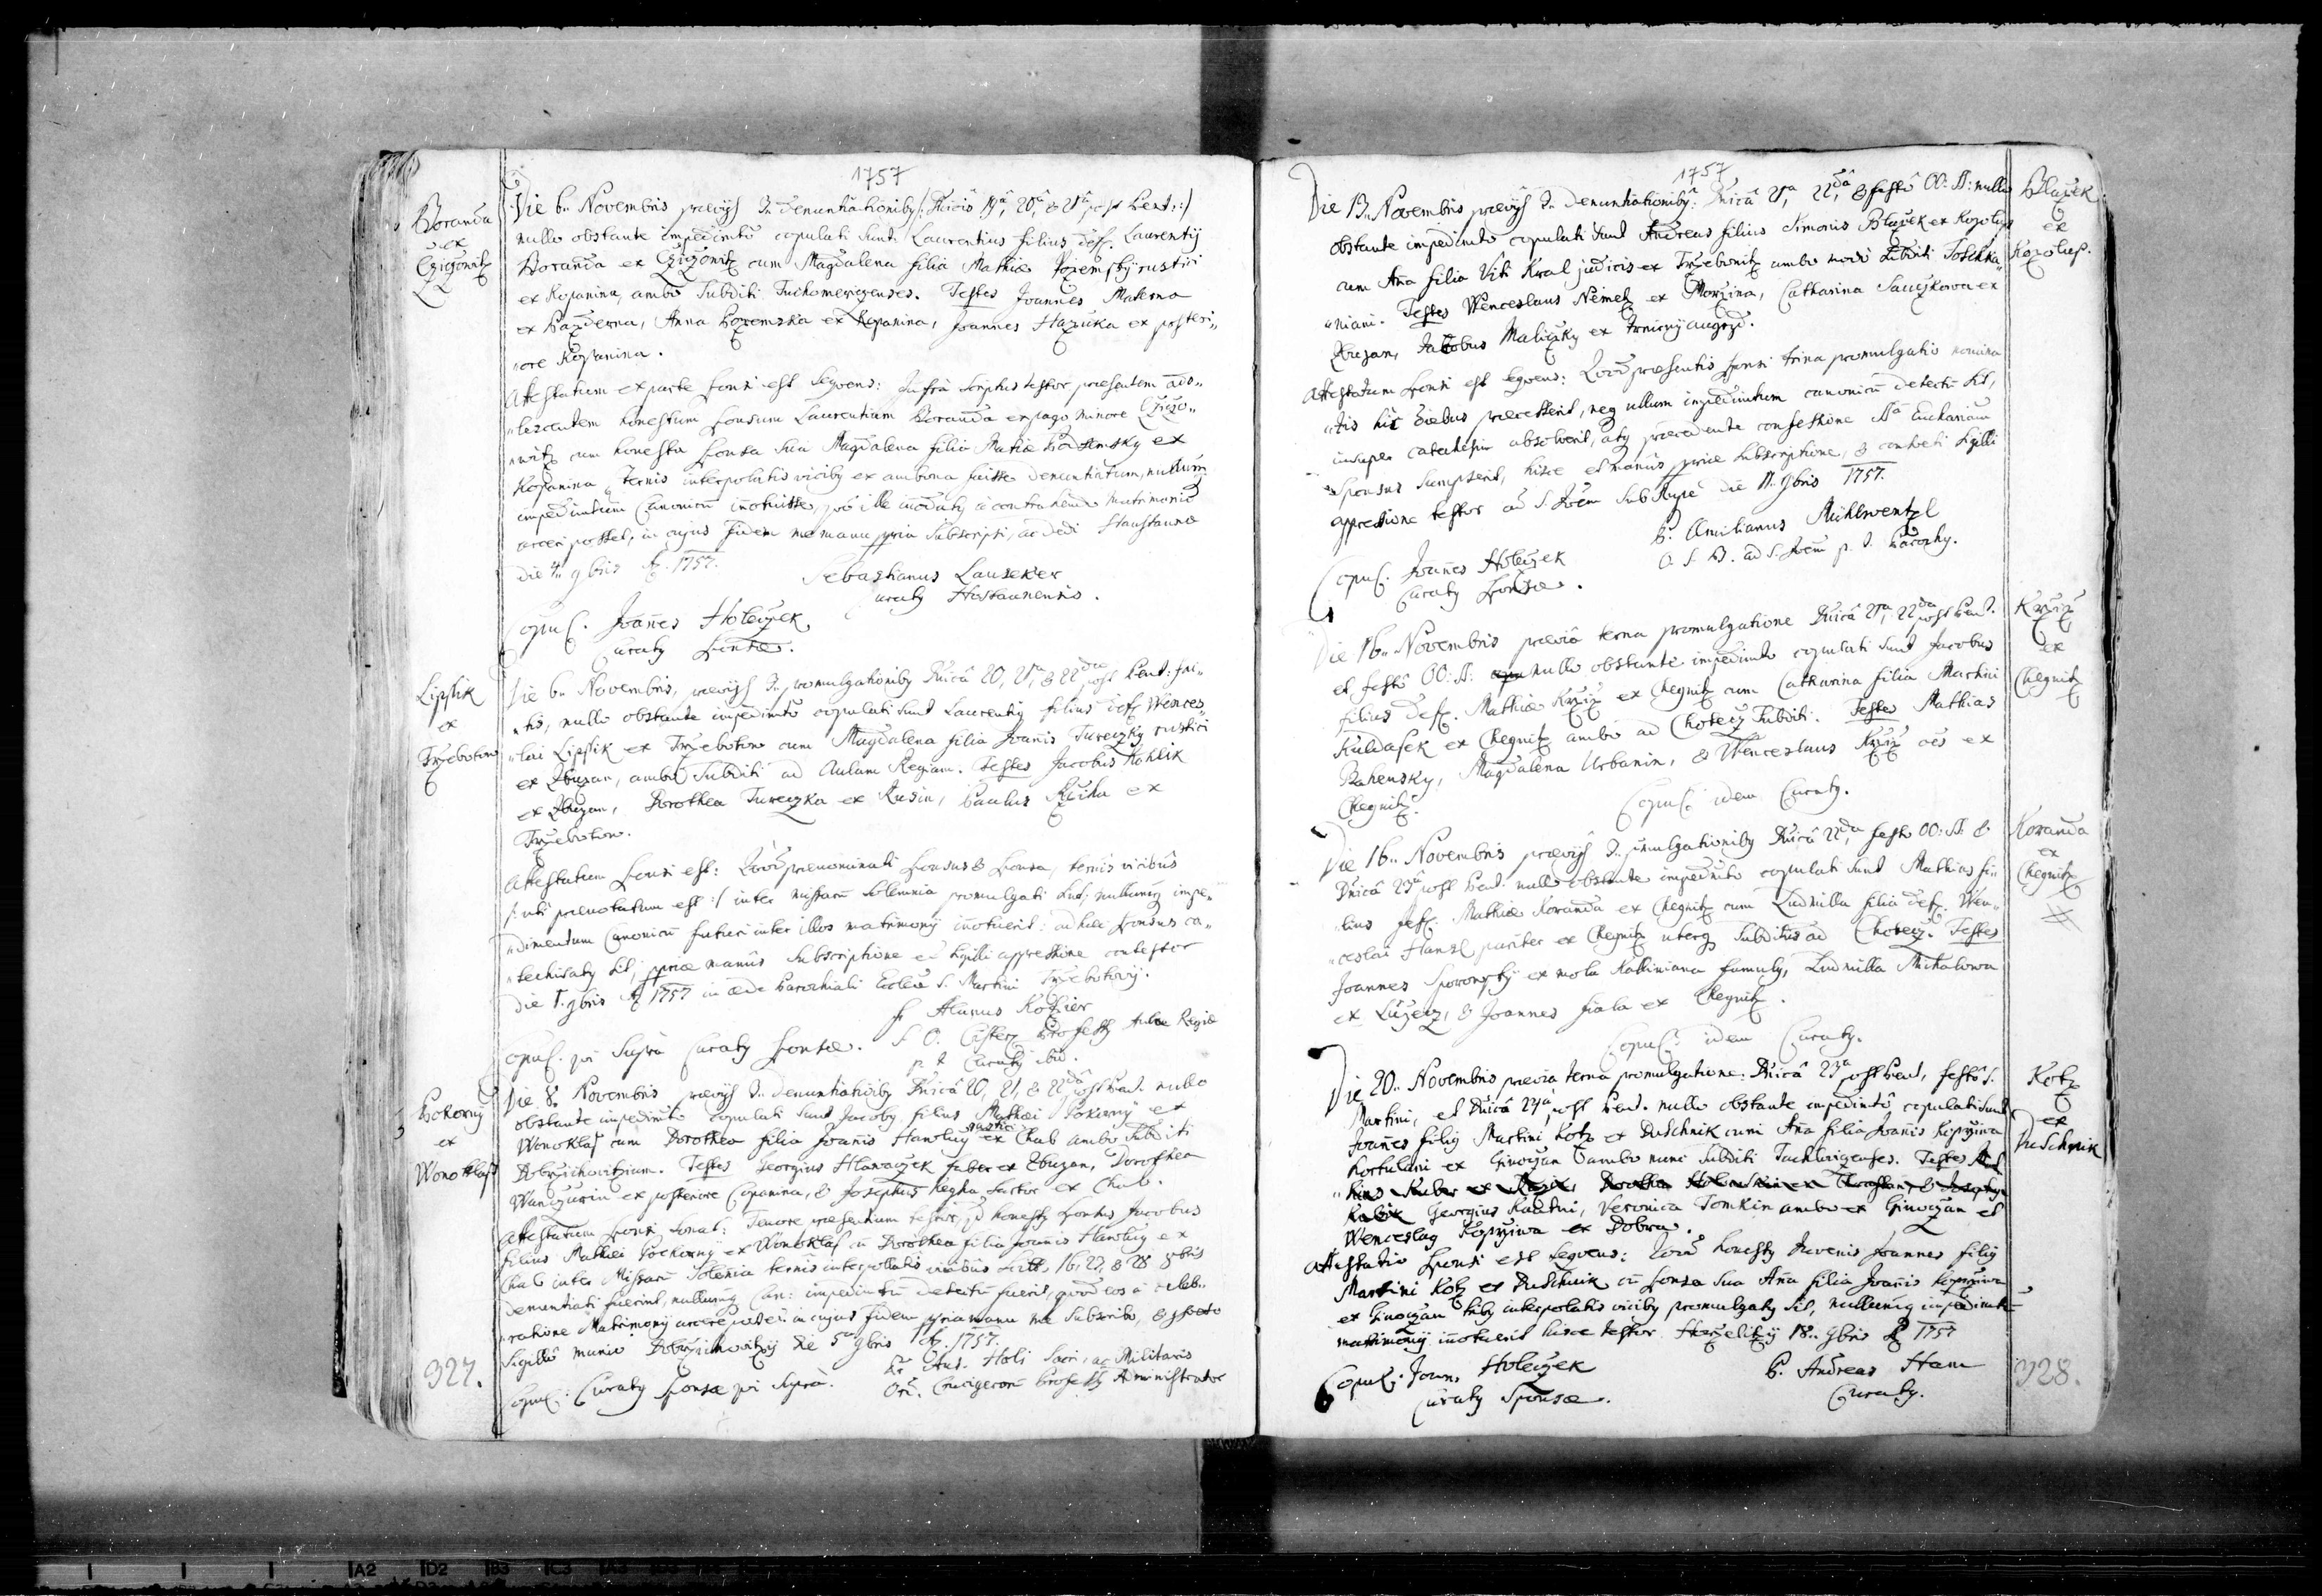 1757
Boranda
ex
Cziczowitz
Die 6. Novembris praevijs 3. denuntiationiby /: Dnicis 19â, 20â, & 21â post Pent: :/
nullo obstante impedimto copulati sunt Laurentius filius deff. Laurentij
Boranda ex Cziczowitz cum Magdalena filia Mathiae Pozemsky rustici
ex Kopanina, ambo Subditi Tuchomericzenses. Testes Joannes Materna
ex Pazderna, Anna Pozemska ex Kopanina, Joannes Hazuka ex posteri„
„ore Kopanina.
Attestatum ex parte sponsi est seqvens: Infrà scriptus testor praesentem ado„
„lescentem honestum sponsum Laurentium Boranda ex pago minore Czicio„
„witz cum honesta sponsa sua Magdalena filia Matiae Pozemsky ex
Kopanina ternis interpolatis viciby ex ambona fuisse denuntiatum, nullum
impedimtum Canonicũ innotuisse, à contrahendo matrimonio
arceri posset, in cujus fidem me manu ppria subscripsi, ac dedi Hostaunae
die 4. 9bris A. 1757.
Sebastianus Lauseker
Curaty Hostaunensis.
Copul. Joannes Holeczek
Curaty Sponsae.
Lipssik
ex
Trzebotow
Die 6. Novembris, praevijs 3. promulgationiby Dnicâ 20, 21â, & 22da post Pent: fac„
„tis, nullo obstante impedimto copulati sunt Laurentiy filius deff. Wences„
„lai Lipssik ex Trzebotow cum Magdalena filia Joannis Tureczky rustici
ex Zbuzan, ambo Subditi ad Aulam Regiam. Testes Jacobus Kohlik
ex Zbuzan, Dorothea Tureczka ex Rusin, Paulus Ruzha ex
Trzebotow.
Attestatum sponsi est: Quòd praenominati sponsus & sponsa, ternis vicibus
/: uti praenotatum est :/ inter missarũ solemnia promulgati sint, nullumq impe„
„dimentum Canonicũ futuri inter illos matrimonij innotuerit: adhaec sponsus ca„
„techisaty sit, ppriae manûs subscriptione et sigilli appressione contestor
die 5. 9bris A 1757 in aede Parochiali Eccleae S. Martini Trzebotovij.
f. Alanus Kotzier
S. O. Cisterc. Professy Aulae Regiae
p. t. Curaty ibid.
Copul. qui supra Curaty sponsae.
Pokorny
ex
Wonoklas
Die 8. Novembris praevijs 3. denuntiationiby Dnicâ 20, 21, & 22dâ post Pent. nullo
obstante impedimto copulati sunt Jacoby filius Mathaei Pokorny ex
Wonoklas cum Dorothea filia Joannis Hawlug rustici ex Chab ambo Subditi
Dobrzichovitzium. Testes Georgius Hlawaczek faber ex Zbuzan, Dorothea
Wanczurin ex posteriore Copanina, & Josephus Regha sartor ex Chab.
Attestatum sponsi sonat: Tenore praesentium testor, qd honesty sponsus Jacobus
filius Mathaei Pockorny ex Wonoklas cũ Dorothea filia Joannis Hawlug ex
Chab inter Missarũ solemnia ternis interpollatis vicibus 16, 23, & 28 8bris
denuntiati fuerint, nullumq Can: impedimtũ detectũ fuerit, quod eos à celeb„
„ratione Matrimonij arcere posset: in cujus fidem ppria manu me subscribo, &
Sigillo munio Dobrzichovitzij die 5ta 9bris A. 1757.
Fr. Ant. Holi Sacri, ac Militaris
Ord. Crucigerorũ Professy Administrator
Copul: Curaty sponsae qui supra.
927.
1757
Blazek
ex
Kozolup.
Die 13. Novembris praevijs 3. denuntiationiby: Dnicâ 21â, 22dâ, & festô OO: SS: nullo
obstante impedimto copulati sunt Andreas filius Simonis Blazek ex Kozolup
cum Anna filia Viti Kral judicis ex Trzebonitz ambo modò Subditi Toskha„
„niani. Testes Wenceslaus Nemetz ex Morzina, Catharina Sauczkowa ex
Zbuzan, Jacobus Maliczky ex Trnieny augezd.
Attestatum sponsi est seqvens: Quod praesentis sponsi trina promulgatio nomina„
„tis hic diebus praecesserit, neq ullum impedimtum canonicũ detectũ sit,
insuper catechesim absolverit, atq praecedente confessione SSã Euchariam
Sponsus sumpserit, hisce et manûs ppriae subscriptione, & consveti sigilli
appressione testor ad S. Joem sub Rupe die 11. 9bris 1757.
P. Aemilianus Mühlwentzl
O. S. B. ad S. Joem p. t. Parochy.
Copul. Joannes Holeczek
Curaty Sponsae.
Krziz
ex
Chegnitz
Die 16. Novembris praeviâ terna promulgatione Dnicâ 21â, 22da post Pent.
et festô OO: SS: nullo obstante impedimto copulati sunt Jacobus
filius deff. Mathiae Krziz ex Chegnitz cum Catharina filia Martini
Kuldassek ex Chegnitz ambo ad Chotecz Subditi. Testes Mathias
Bahensky, Magdalena Urbanin, & Wenceslaus Krziz oes ex
Chegnitz.
Copul. idem Curaty.
Koranda
ex
Chegnitz
Die 16. Novembris praevijs 3. pmulgationiby Dnicâ 22da, festo OO: SS: &
Dnicâ 23â post Pent. nullo obstante impedimto copulati sunt Mathias fi„
„lius deff. Mathiae Koranda ex Chegnitz cum Ludmilla filia deff. Wen„
„ceslai Hansl pariter ex Chegnitz uterq Subditus ad Chotecz. Testes
Joannes Sporowsky ex mola Kalliniana famuly, Ludmilla Michalowa
ex Luzecz, & Joannes fiala ex Chegnitz.
Copul. idem Curaty.
Kotz
ex
Duschnik
Die 20. Novembris praevia terna promulgatione: Dnicâ 23â post Pent, festô S.
Martini, et Dnicâ 24â post Pent. nullo obstante impedimtô copulati sunt
Joannes filiy Martini Kotz ex Duschnik cum Anna filia Joannis Koprziwa
hortulani ex Ginoczan ambo nunc Subditi Tachlovizenses. Testes
Georgius Kautni, Veronica Tomkin ambo ex Ginoczan et
Wenceslay Koprziwa ex Dobra.
Attestatio sponsi est seqvens: Quod honesty Juvenis Joannes filiy
Martini Kotz ex Duschnik cũ sponsa sua Anna filia Joannis Koprziwa
ex Ginoczan triby interpolatis viciby promulgaty sit, nullumq impedimtũ
matrimonij innotuerit hisce testor. Horzelitzij 18. 9bris A 1757
P. Andreas Ham
Curaty.
Copul. Joan. Holeczek
Curaty Sponsae.
928.